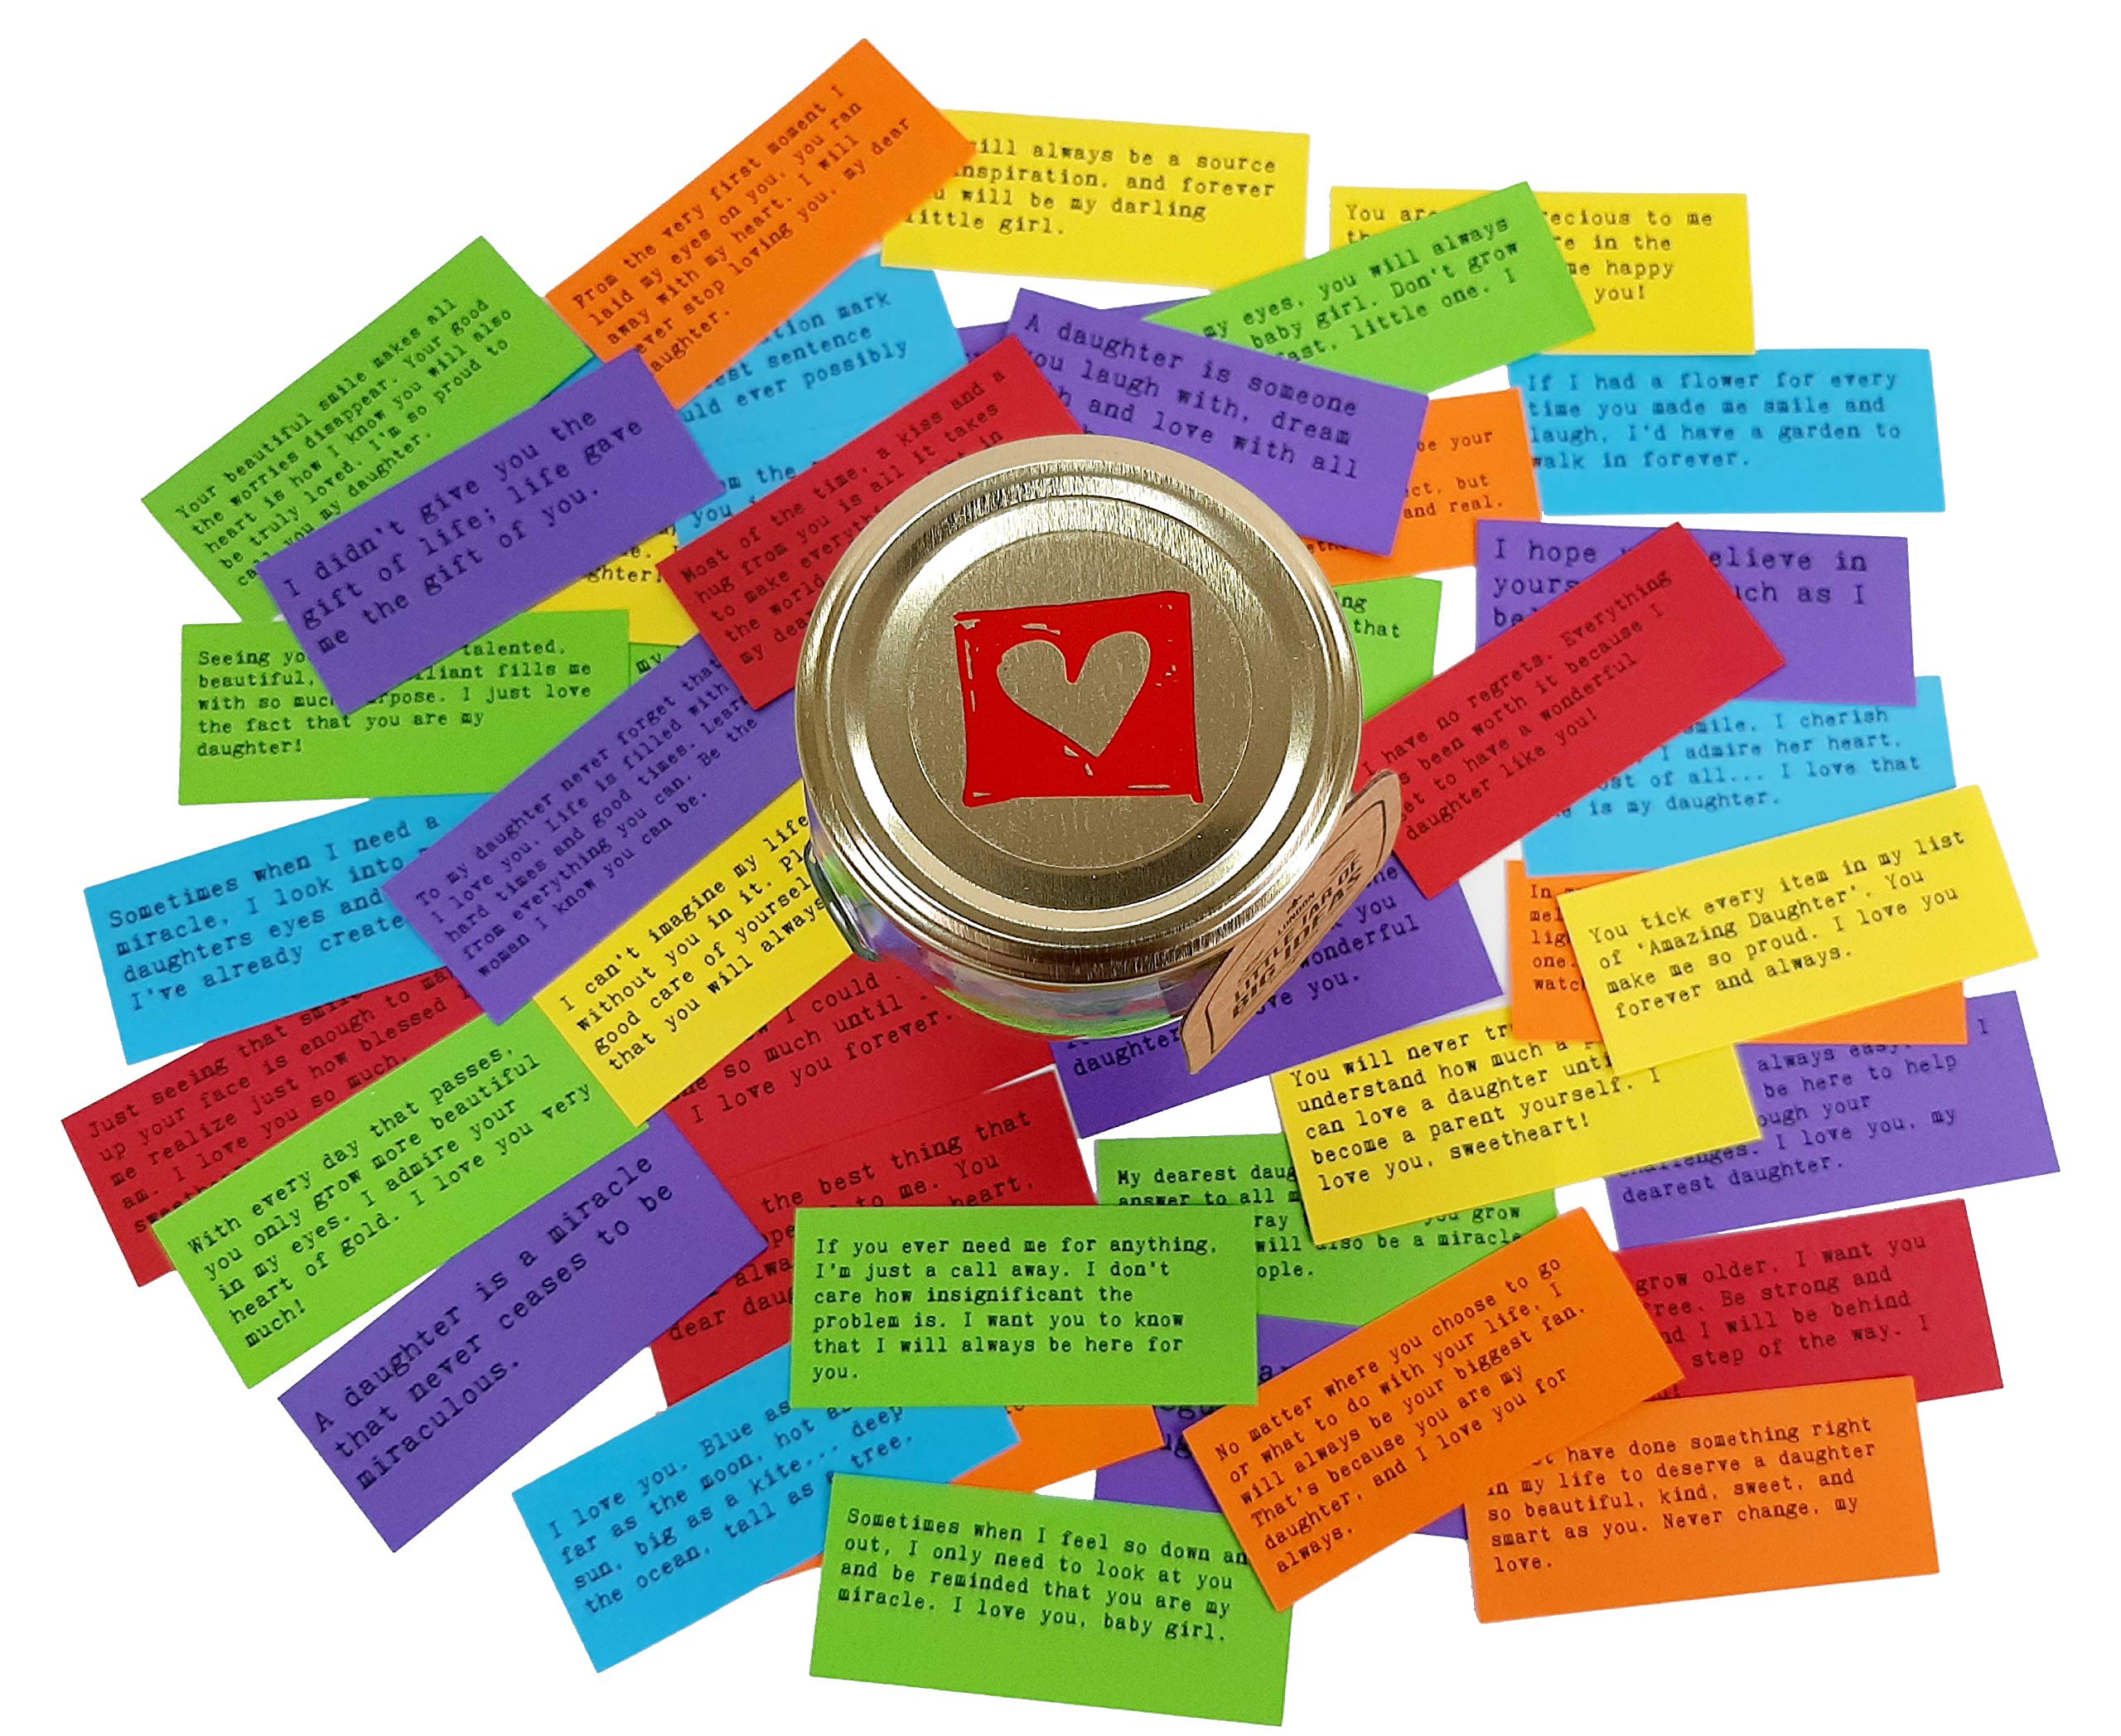 From the very first moment I
laid my eyes on you, you ran
away with my heart. I will
ever stop loving you, my dear
aughter.
ill always be a source
nspiration, and forever
will be my darling
little girl.
You are
ecious to me
in the
me happy
you!
my eyes, you will always
baby girl. Don't grow
fast, little one. I
Your beautiful smile makes all
the worries disappear. Your good
heart is how I know you will also
be truly loved. I'm so proud to
call you my daughter.
tion mark
est sentence
uld ever possibly
A daughter is someone
you laugh with, dream
and love with all
If I had a flower for every
time you made me smile and
laugh, I'd have a garden to
walk in forever.
be your
ect, but
and real.
I didn't give you the
gift of life; life gave
me the gift of you.
Most of the time, a kiss and a
hug from you is all it takes
to make everyth in
the world
my dea
om the
you
ghter!
I hope
elieve in
yours
uch as I
be
ng
that
Seeing yo talented,
beautiful, lliant fills me
with so much rpose. I just love
the fact that you are my
daughter!
my
To my daughter never forget that
I love you. Life is filled with
hard times and good times. Learn
from everything you can. Be the
woman I know you can be.
I have no regrets. Everything
s been worth it because I
et to have a wonderful
daughter like you!
mile. I cherish
I admire her heart.
ost of all... I love that
is my daughter.
Sometimes when I need a
miracle, I look into
daughters eyes and
I've already create
I can't imagine my life
without you in it. Pl
good care of yoursel
that you will always
LONDON
LITTLE JAR OF
BIG IDEAS
the
you
wonderful
love you.
daughter
In
mel
lig
one.
watc
You tick every item in my list
of 'Amazing Daughter'. You
make me so proud. I love you
forever and always.
Just seeing that smile
up your face is enough to ma
me realize just how blessed I
am. I love you so much,
I could
me so much until
I love you forever.
With every day that passes,
you only grow more beautiful
in my eyes. I admire your
heart of gold. I love you very
much!
You will never tr
understand how much a
can love a daughter unti
become a parent yourself. I
love you, sweetheart!
I
always easy.
be here to help
ough your
challenges. I love you, my
dearest daughter.
A daughter is a miracle
that never ceases to be
miraculous.
the best thing that
to me. You
heart,
alwa
dear daug
My dearest daug
answer to all m
ray
you grow
will also be a miracle
ople.
If you ever need me for anything,
I'm just a call away. I don't
care how insignificant the
problem is. I want you to know
that I will always be here for
you.
grow older, I want you
free. Be strong and
nd I will be behind
step of the way. I
No matter where you choose to go
or what to do with your life, I
will always be your biggest fan.
That's because you are my
daughter, and I love you for
always.
I love you. Blue as
far as the moon, hot as
sun, big as a kite... deep
the ocean, tall as tree.
have done something right
in my life to deserve a daughter
so beautiful, kind, sweet, and
smart as you. Never change, my
love.
Sometimes when I feel so down an
out, I only need to look at you
and be reminded that you are my
miracle. I love you, baby girl.